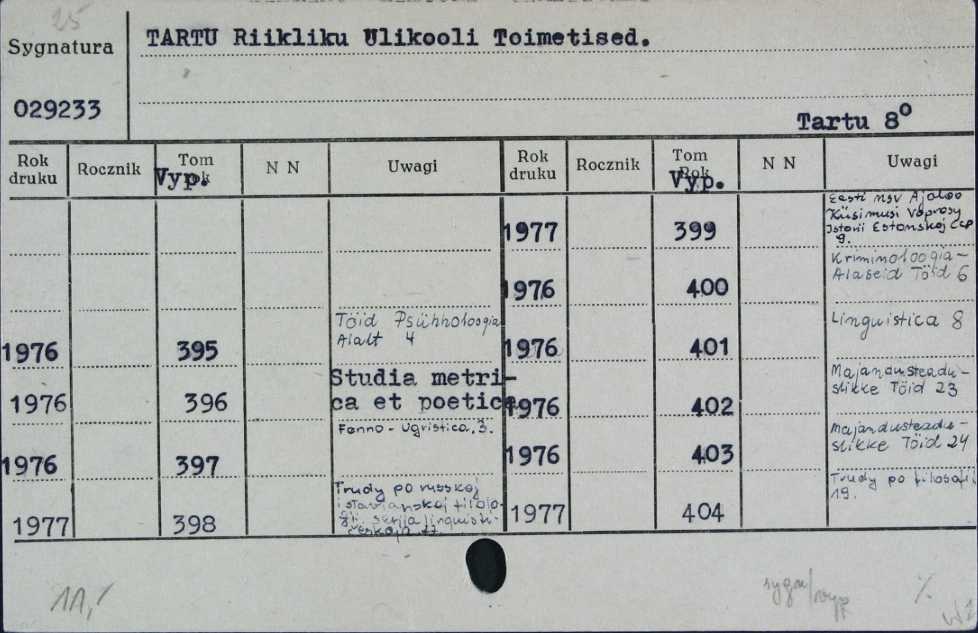 25
Sygnatura
TARTU Riikliku Ulikooli Toimetised.
029233
Tartu 8⁰
Rok druku Rocznik Tom Rok Vyp. N N Uwagi
1976 395 Töid Psühholoogia
Alalt 4
1976 396 Studia metri-
ca et poetica.
1976 397 Fenno-Ugristica. 3.
1977 398 Trudy po russkoj
i slavjanskoj filolo-
gii. serija lingvisti-
českaja
Rok druku Rocznik Tom Rok Vyp. N N Uwagi
1977 399 Eesti NSV Ajaloo
Küsimusi Voprosy
Istorii Estonskoj CCP
9.
1976 400 Kriminoloogia-
Alaseid Töid 6
1976 401 Linguistica 8
1976 402 Majandusteadu-
slikke Töid 23
1976 403 Majandusteadu-
slikke Töid 24
1977 404 Trudy po filosofii
19.
11,-
sygn/